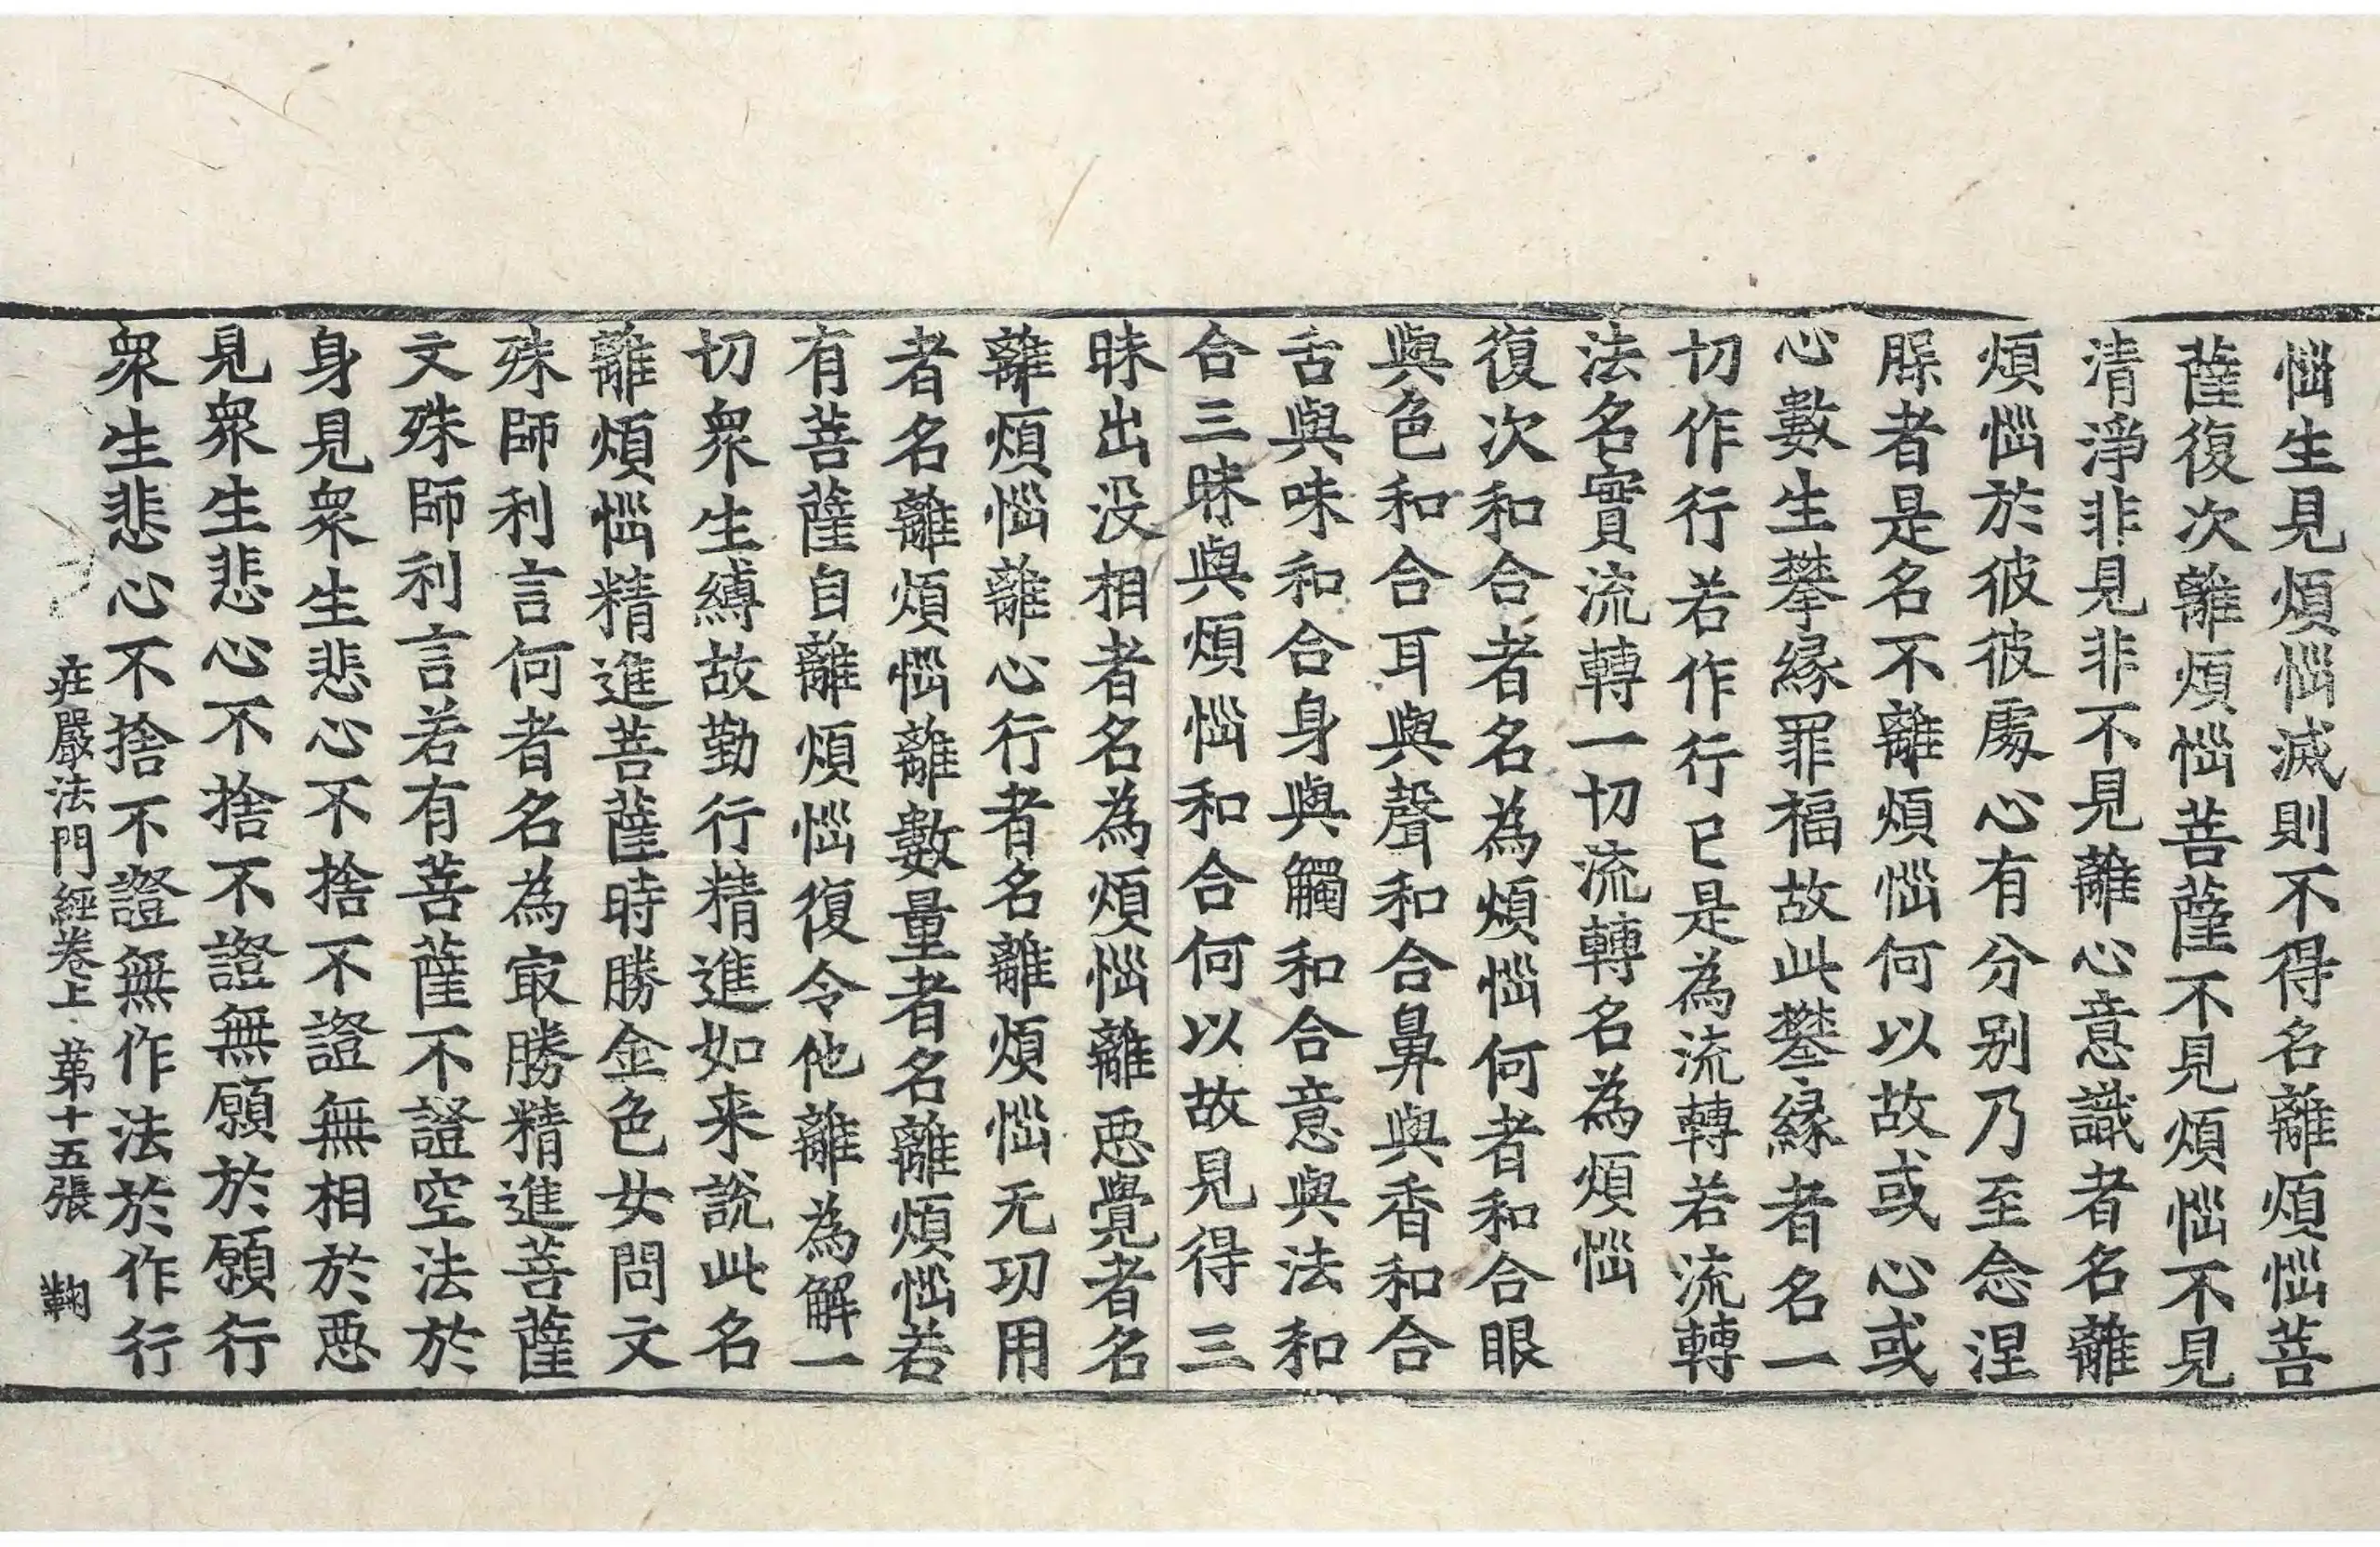 惱生見煩惱滅則不得名離煩惱菩
薩復次離煩惱菩薩不見煩惱不見
清淨非見非不見離心意識者名離
煩惱於彼彼處心有分别乃至念涅
縣者是名不離煩惱何以故或心或
心數生攀緣罪福故此攀緣者名一
切作行若作行已是為流轉若流轉
法名實流轉一切流轉名為煩惱
復次和合者名為煩惱何者和合眼
與色和合耳與聲和合鼻與香和合
舌與味和合身與觸和合意與法和
合三昧與煩惱和合何以故見得三
昧出没相者名為煩惱離惡覺者名
離煩惱離心行者名離煩惱无功用
者名離煩惱離數量者名離煩惱若
有菩薩自離煩惱復令他離為解一
切衆生縛故勤行精進如来說此名
離煩惱精進菩薩時勝金色女問文
殊師利言何者名為冣勝精進菩薩
文殊師利言若有菩薩不證空法於
身見衆生悲心不捨不證無相於惡
見衆生悲心不捨不證無願於願行
衆生悲心不捨不證無作法於作行
庄嚴法門經卷上 苐十五張 鞠